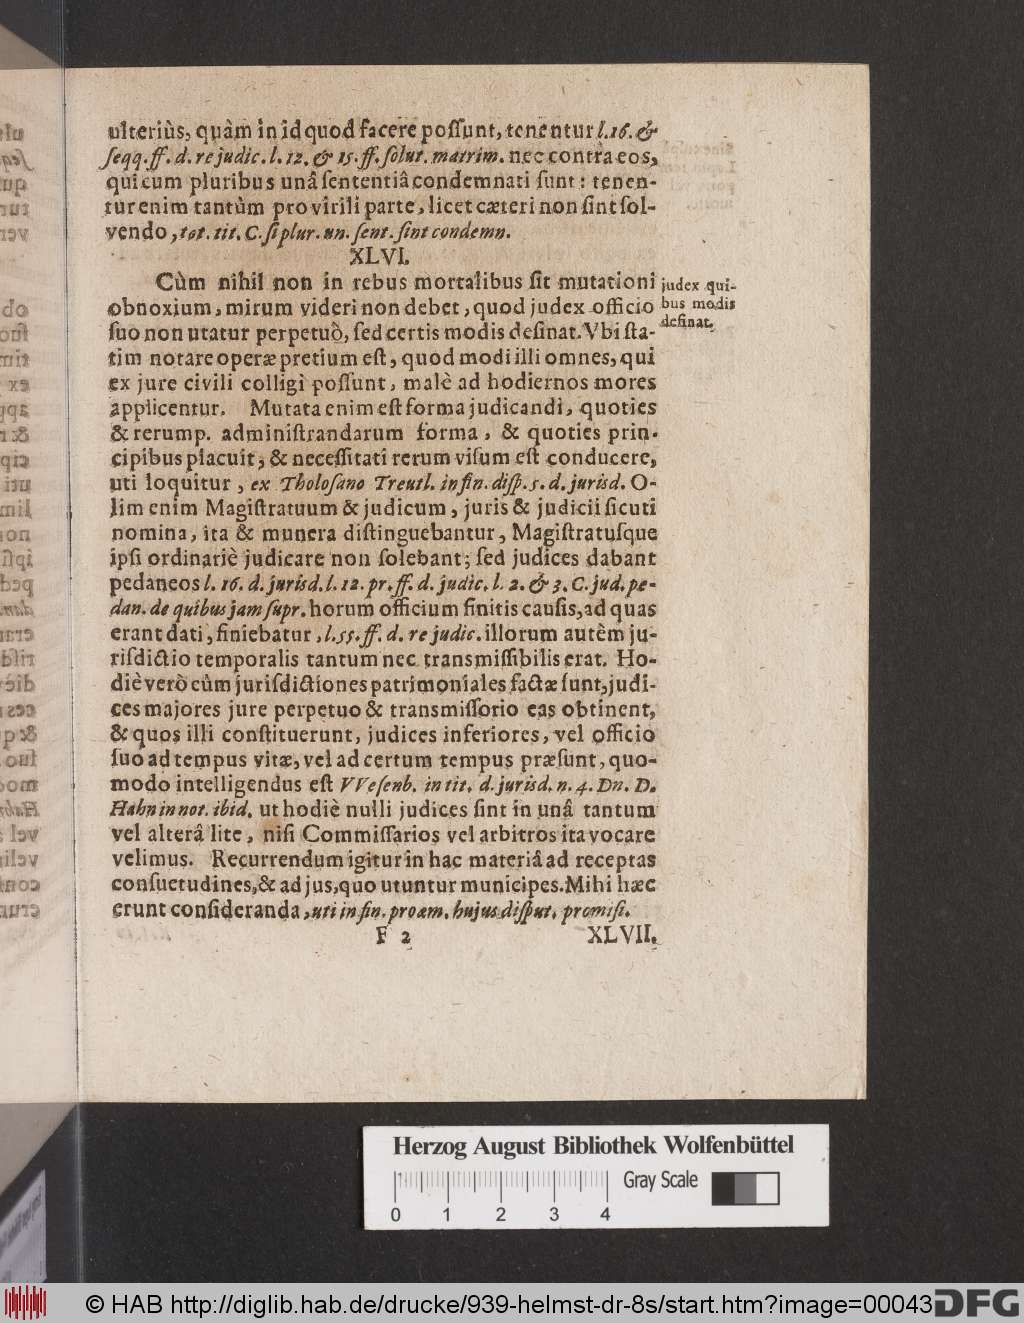 ulteriùs, quàm in id quod facere poſſunt, tenentur l. 16. &
ſeqq. ff. d. re judic. l. 12. & 15. ff. ſolut. matrim. nec contra eos,
qui cum pluribus unâ ſententiâ condemnati ſunt: tenen-
tur enim tantùm pro virili parte, licet cæteri non ſint ſol-
vendo, tot. tit. C. ſi plur. un. ſent. ſint condemn.
XLVI.
Cùm nihil non in rebus mortalibus ſit mutationi
obnoxium, mirum videri non debet, quod judex officio
ſuo non utatur perpetuò, ſed certis modis deſinat. Vbi ſta-
tim notare operæ pretium eſt, quod modi illi omnes, qui
ex jure civili colligi poſſunt, malè ad hodiernos mores
applicentur. Mutata enim eſt forma judicandi, quoties
& rerump. adminiſtrandarum forma, & quoties prin-
cipibus placuit, & neceſſitati rerum viſum eſt conducere,
uti loquitur, ex Tholoſano Treutl. in fin. diſp. 5. d. jurisd. O-
lim enim Magiſtratuum & judicum, juris & judicii ſicuti
nomina, ita & munera diſtinguebantur, Magiſtratuſque
ipſi ordinariè judicare non ſolebant; ſed judices dabant
pedaneos l. 16. d. jurisd. l. 12. pr. ff. d. judic. l. 2. & 3. C. jud. pe-
dan. de quibus jam ſupr. horum officium finitis cauſis, ad quas
erant dati, finiebatur, l. 55. ff. d. re judic. illorum autèm ju-
riſdictio temporalis tantum nec transmiſſibilis erat. Ho-
diè verò cùm juriſdictiones patrimoniales factæ ſunt, judi-
ces majores jure perpetuo & transmiſſorio eas obtinent,
& quos illi conſtituerunt, judices inferiores, vel officio
ſuo ad tempus vitæ, vel ad certum tempus præſunt, quo-
modo intelligendus eſt VVeſenb. in tit. d. jurisd. n. 4. Dn. D.
Hahn in not. ibid. ut hodiè nulli judices ſint in unâ tantum
vel alterâ lite, niſi Commiſſarios vel arbitros ita vocare
velimus. Recurrendum igitur in hac materiâ ad receptas
conſuetudines, & ad jus, quo utuntur municipes. Mihi hæc
erunt conſideranda, uti in fin. proœm. hujus diſput. promiſi.
F 2 XLVII.
judex qui-
bus modis
deſinat.
Herzog August Bibliothek Wolfenbüttel
Gray Scale
0 1 2 3 4
© HAB http://diglib.hab.de/drucke/939-helmst-dr-8s/start.htm?image=00043
DFG